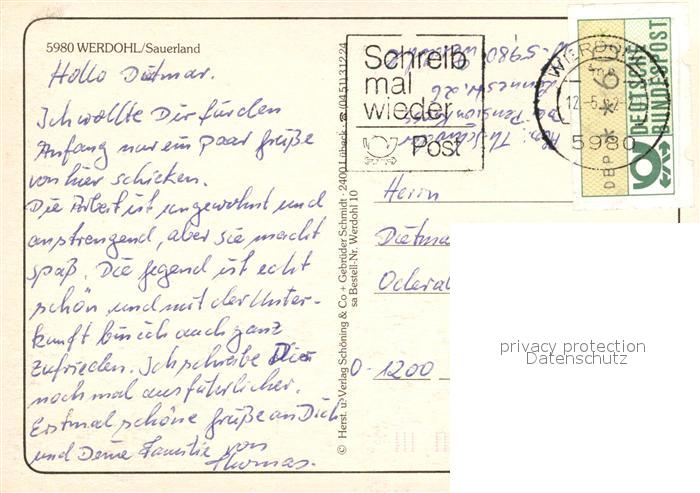 5980 WERDOHL/Sauerland
Hallo Dietmar.
Ich wollte Dir für den
Anfang nur ein paar Grüße
von hier schicken.
Die Arbeit ist ungewohnt und
anstrengend, aber sie macht
spaß. Die Gegend ist echt
schön und mit der Unter-
kunft bin ich auch ganz
zufrieden. Ich schreibe Dir
noch mal ausführlicher.
Erstmal schöne Grüße an Dich
und Deine Familie von
Thomas.
© Herst. u. Verlag Schöning & Co + Gebrüder Schmidt · 2400 Lübeck · ☎ (04 51) 3 12 24
sa Bestell-Nr. Werdohl 10
Schreib
mal
wieder
Post
WERDOHL
5980
DEUTSCHE
BUNDESPOST
DBP
D-5980
Herrn
Dietma
O-1200
privacy protection
Datenschutz